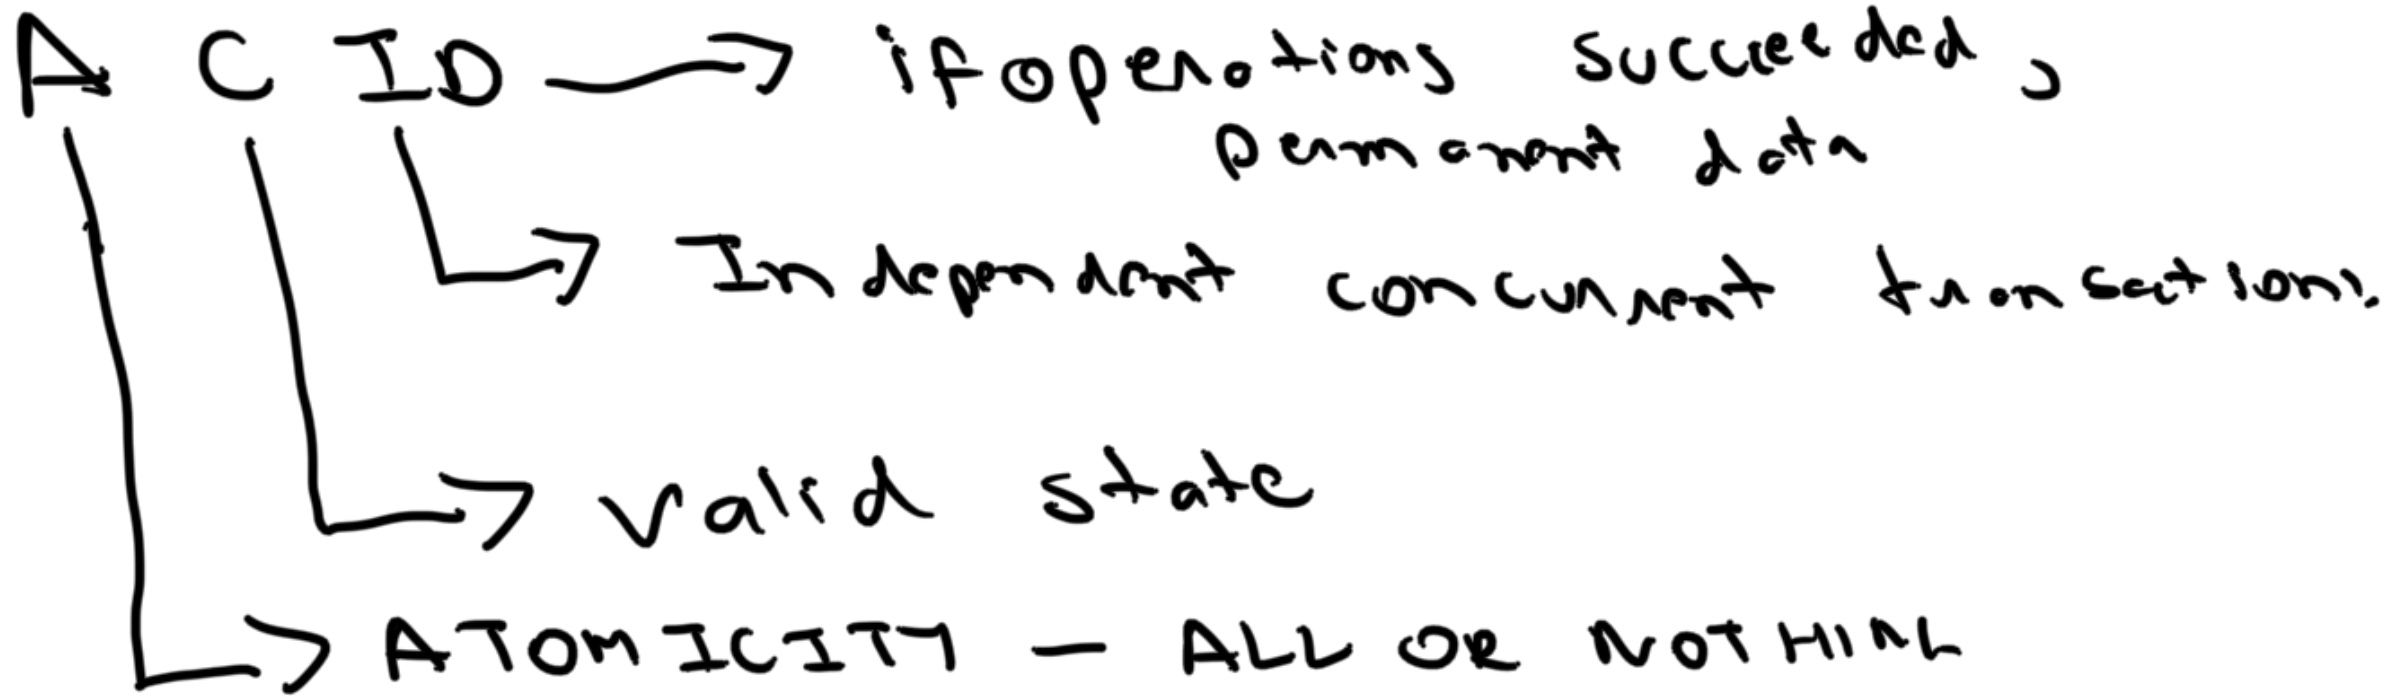 ACID → if operations succeeded,
permanent data
Independent concurrent transactions.
valid state
ATOMICITY — ALL OR NOTHING